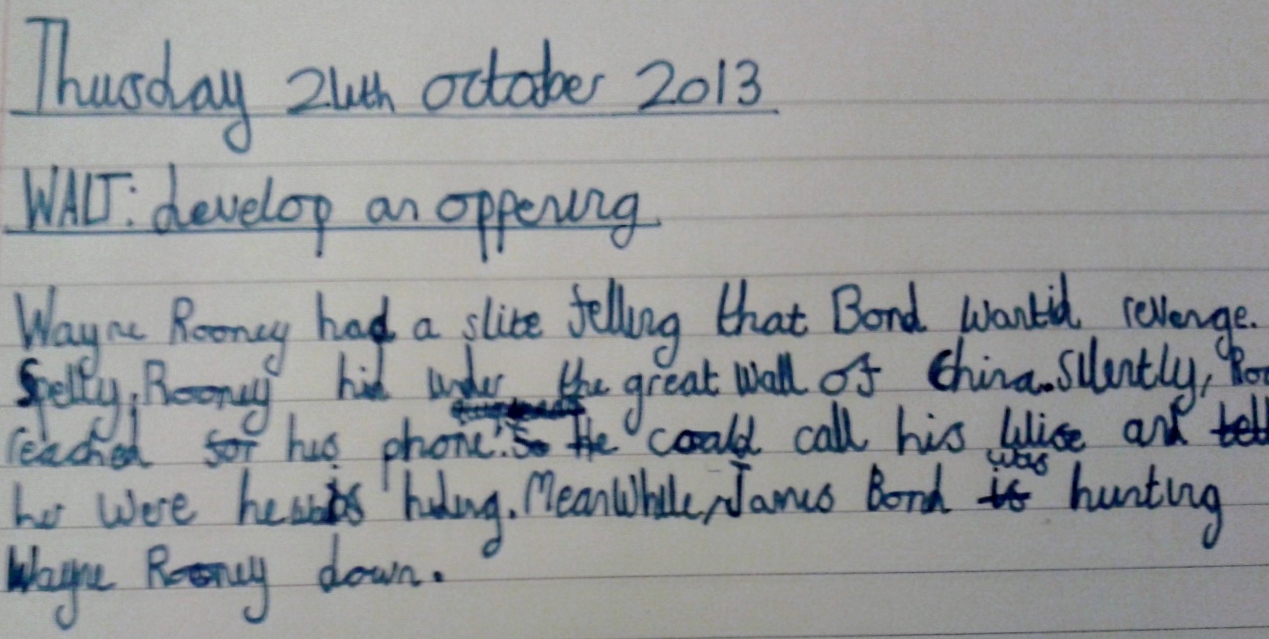 Thusday 24th october 2013
WALT: develop an oppening
Wayne Rooney had a slite felling that Bond wantid revenge.
Spelty, Rooney hid under the great wall of China. Silently, Roo
reached for his phone. So He could call his Wife and tell
her were he was hiding. MeanWhile, James Bond was hunting
Wayne Rooney down.